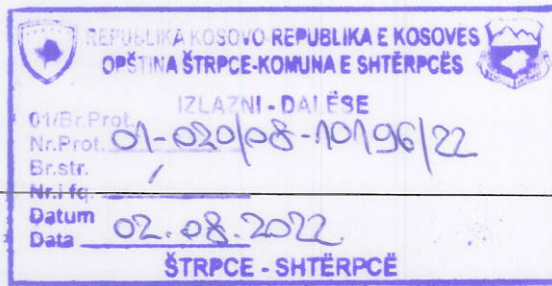 REPUBLIKA KOSOVO-REPUBLIKA E KOSOVËS
OPŠTINA ŠTRPCE-KOMUNA E SHTËRPCËS
IZLAZNI - DALËSE
01/Br.Prot.
Nr.Prot. 01-020/08-10196/22
Br.str. /
Nr.i fq.
Datum
Data 02.08.2022
ŠTRPCE - SHTËRPCË